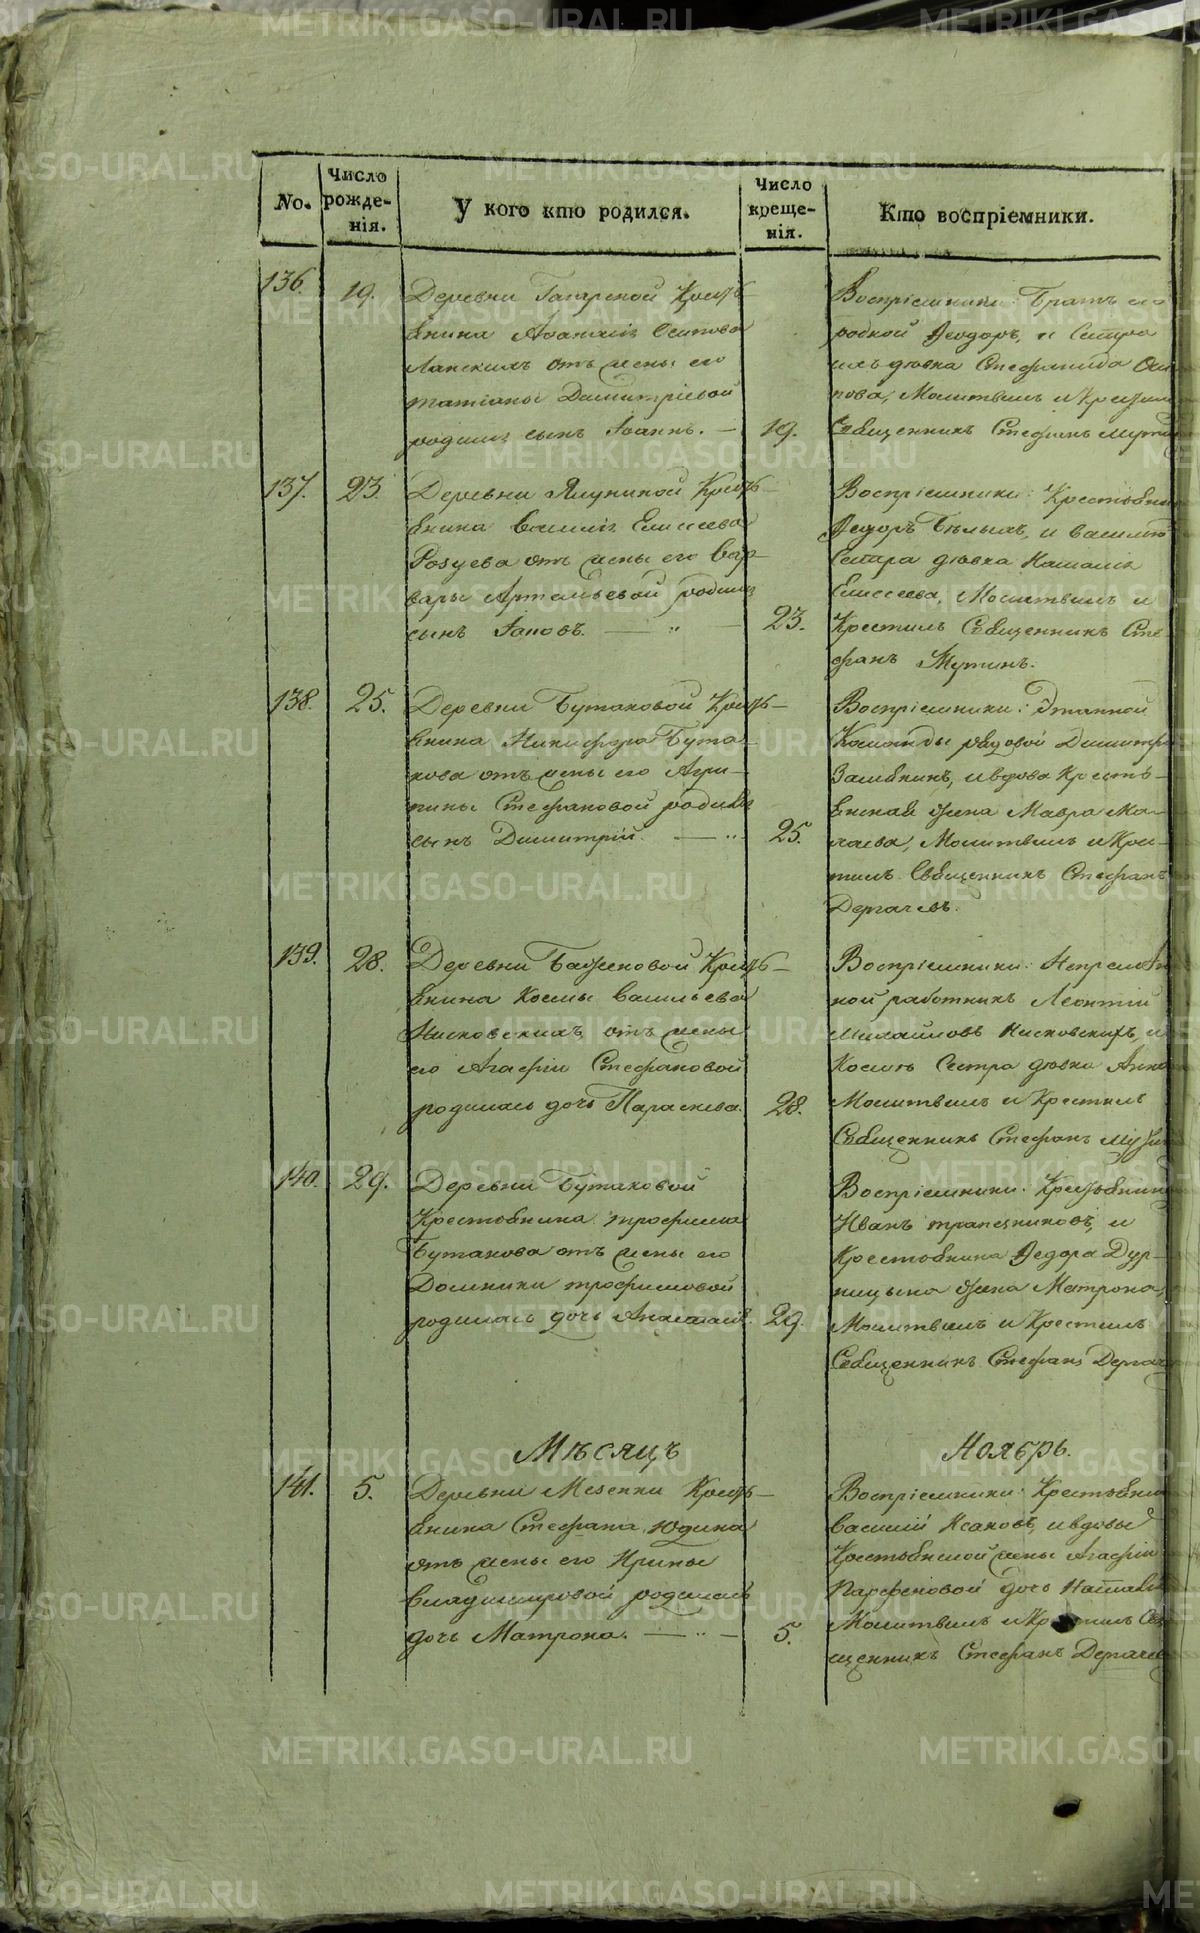 No.
Число рожде-нія.
У кого кто родился.
Число креще-нія.
Кто воспріемники.
136.
19.
Деревни Гагарской Кресть-
янина Аѳанасія Осипова
Лапскихъ отъ жены его
Татіаны Димитріевой
родился сынъ Іоаннъ. —
19.
Воспріемники: Братъ его
родной Ѳеодоръ, и Сестра
ихъ дѣвка Стефанида Оси
пова, Молитвилъ и Крестил
Священникъ Стефанъ
137.
23.
Деревни Ялуниной Кресть-
янина Василія Елисеева
Розуева отъ жены его Вар-
вары Артемьевой родился
сынъ Іаковъ. — „ —
23.
Воспріемники: Крестьянин
Ѳедоръ Бѣлыхъ, и Василія
Сестра дѣвка Наталія
Елисеева, Молитвилъ и
Крестилъ Священникъ Сте
фанъ Мутинъ.
138.
25.
Деревни Бутаковой Кресть-
янина Никифора Бута-
кова отъ жены его Агри-
пины Стефановой родился
сынъ Димитрій. — „
25.
Воспріемники: Этапной
Команды рядовой Димитрі
и вдова Кресть-
янская жена Мавра
Молитвилъ и Крес-
тилъ Священникъ Стефанъ
Дергачевъ.
139.
28.
Деревни Баженовой Кресть-
янина Космы Васильева
Нисковскихъ, отъ жены
его Агафіи Стефановой
родилась дочь Параскева.
28.
Воспріемники: Непремѣн
ной работникъ Леонтій
Михайловъ Нисковскихъ, и
Космы Сестра дѣвка Анна
Молитвилъ и Крестилъ
Священникъ Стефанъ
140.
29.
Деревни Бутаковой
Крестьянина Трофима
Бутакова отъ жены его
Домники Трофимовой
родилась дочь Анастасія.
29.
Воспріемники: Крестьянинъ
Иванъ Трапезниковъ, и
Крестьянина Ѳедора Дур-
ницына жена Матрона,
Молитвилъ и Крестилъ
Священникъ Стефанъ Дергач
Мѣсяцъ
Ноябрь.
141.
5.
Деревни Мезенки Кресть-
янина Стефана Юдина
отъ жены его Ирины
Владимировой родилась
дочь Матрона. — „ —
5.
Воспріемники: Крестьянин
Василій Исаковъ, и вдовы
Крестьянской жены Агафіи
Парфеновой дочь Наталія
Молитвилъ и Крестилъ Свя
щенникъ Стефанъ Дергачев
METRIKI.GASO-URAL.RU